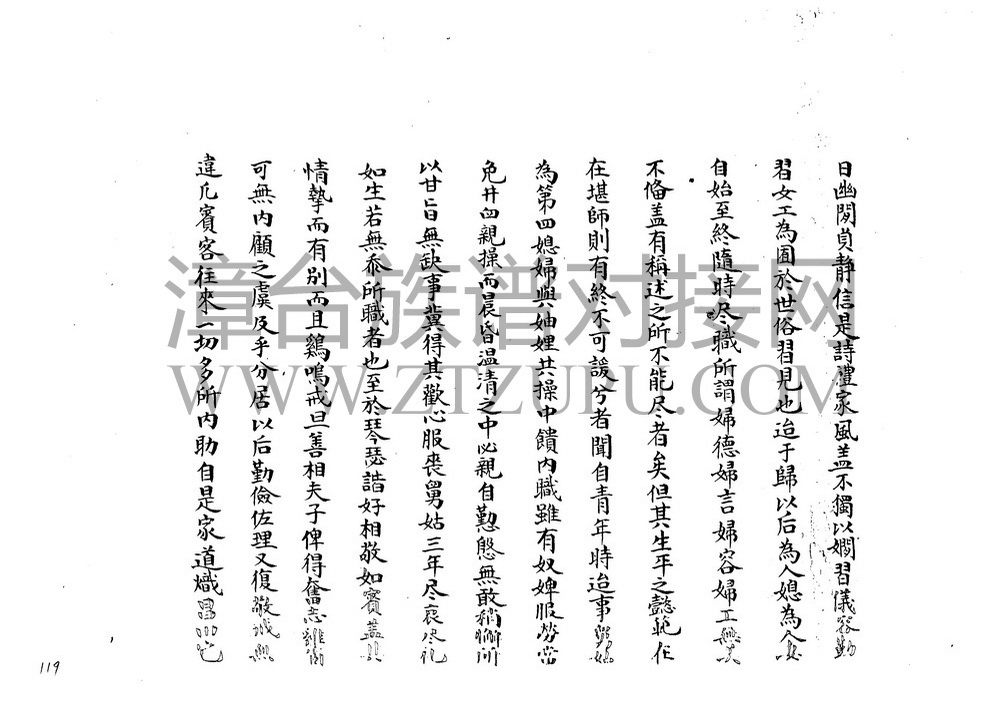 日幽閒貞靜信是詩澧家風盖不獨以嫺習儀容勤
習女工為囿於世俗習見也迨于歸以后為人媳為人
自始至終隨時尽職所謂婦德婦言婦容婦工
不俻盖有稱述之所不能尽者矣但其生平之懿範
在堪師則有終不可諼兮者聞自青年時迨事
為第四媳婦與妯娌共操中饋內職雖有奴婢服勞
免井臼親操而晨昏温清之中必親自慇慇無敢稍懈所
以甘旨無缺事冀得其歡心服喪舅姑三年尽哀尽礼
如生若無忝所職者也至於琴瑟諧好相敬如賓盖
情摯而有别而且鷄鳴戒旦善相夫子俾得奮志
可無内顧之虞及乎分居以后勤儉佐理又復
違凡賓客往來一切多所内助自是家道熾昌
119
漳台族谱对接网
WWW.ZTZUPU.COM